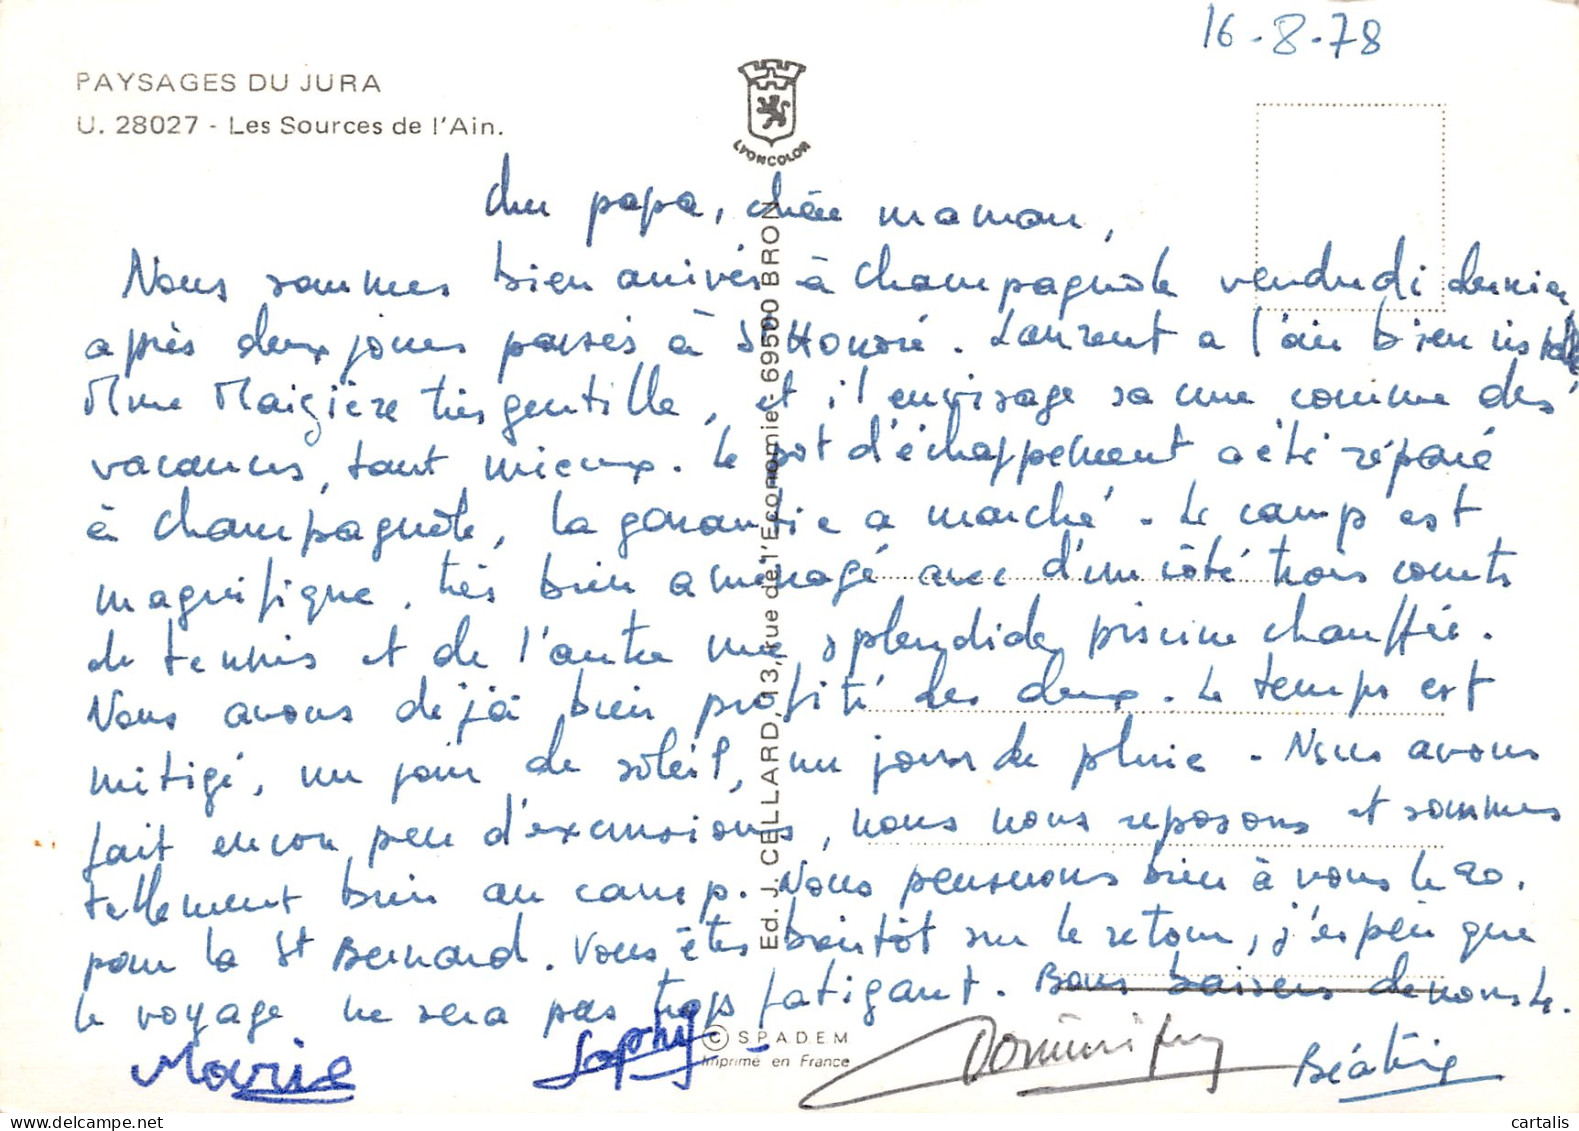 16-8-78
PAYSAGES DU JURA
U. 28027 - Les Sources de l'Ain.
LYONCOLOR
Cher papa, chère maman,
Nous sommes bien arrivés à Champagnole vendredi dernier,
après deux jours passés à St Honoré. Laurent a l'air bien installé,
Mme Maizière très gentille, et il envisage sa cure comme des
vacances, tant mieux. Le pot d'échappement a été réparé
à Champagnole, la garantie a marché. Le camp est
magnifique, très bien aménagé avec d'un côté trois courts
de tennis et de l'autre une splendide piscine chauffée.
Nous avons déjà bien profité des deux. Le temps est
mitigé, un jour de soleil, un jour de pluie. Nous avons
fait encore peu d'excursions, nous nous reposons et sommes
tellement bien au camp. Nous penserons bien à vous le 20,
pour la St Bernard. Vous êtes bientôt sur le retour, j'espère que
le voyage ne sera pas trop fatigant. Bons baisers de nous te.
Marie Sophie Dominique Béatrice
Ed. J. CELLARD, 13, rue de l'Economie, 69500 BRON
© S.P.A.D.E.M
Imprimé en France
cartalis
www.delcampe.net